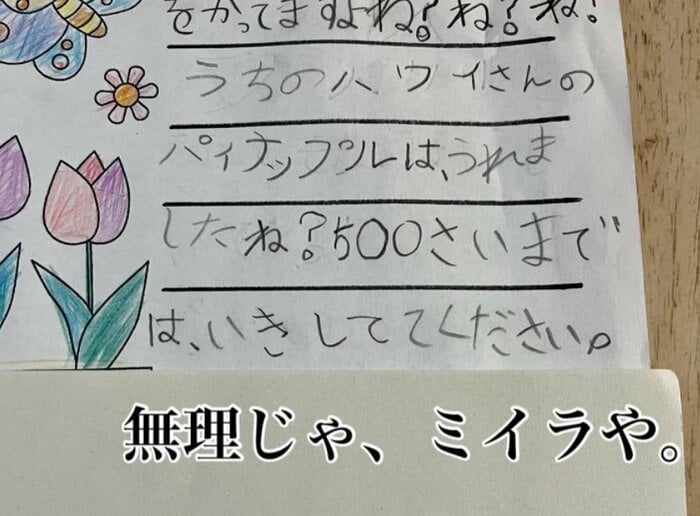 をかってますよね?ね?ね!
うちのハワイさんの
パイナップルは、うれま
したね?500さいまで
は、いきしててください。
無理じゃ、ミイラや。